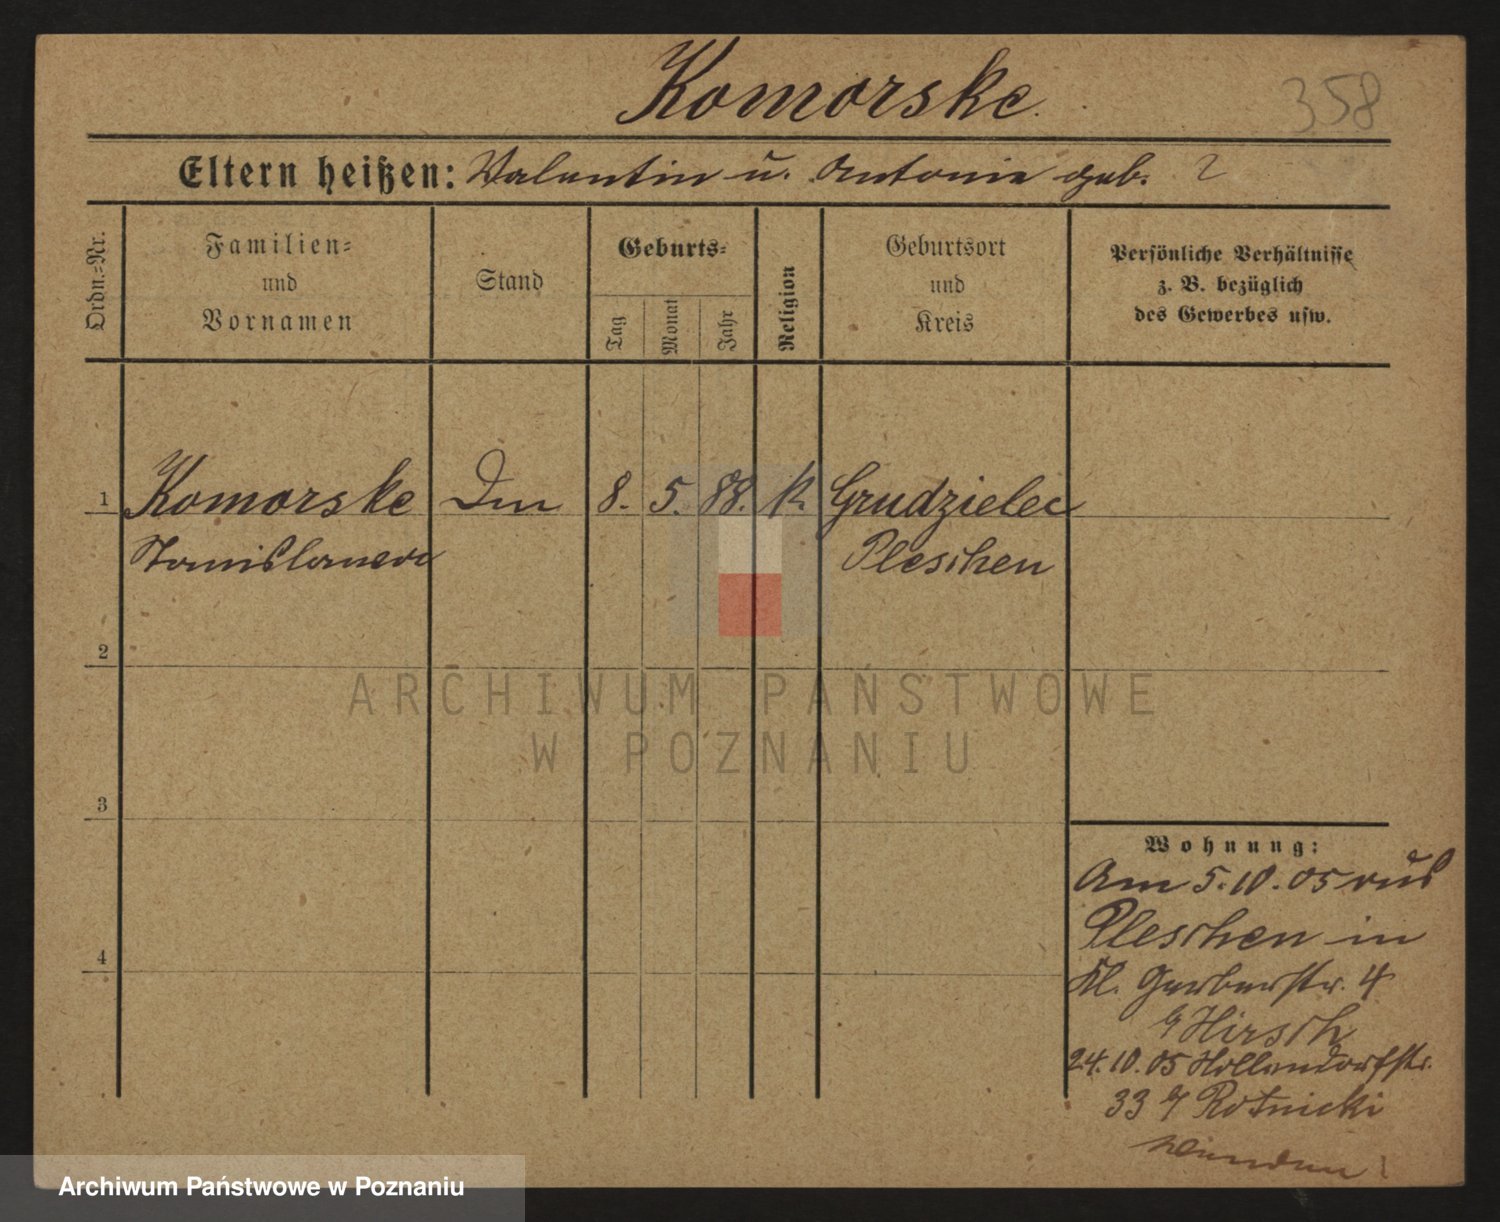 Komorske
358
Eltern heißen: Valentin u. Antonie geb. ?
Ordn.=Nr.
Familien=
und
Vornamen
Stand
Geburts=
Tag
Monat
Jahr
Religion
Geburtsort
und
Kreis
Persönliche Verhältnisse
z. B. bezüglich
des Gewerbes usw.
1 Komorske 8. 5. 88. k. Grudzielec
Stanislawa Pleschen
2
3
4
Wohnung:
Am 5.10.05 aus
Pleschen in
Kl. Gerberstr. 4
b/ Hirsch
24.10.05 Hollendorfstr.
33 b/ Rotnicki
ARCHIWUM PAŃSTWOWE
W POZNANIU
Archiwum Państwowe w Poznaniu